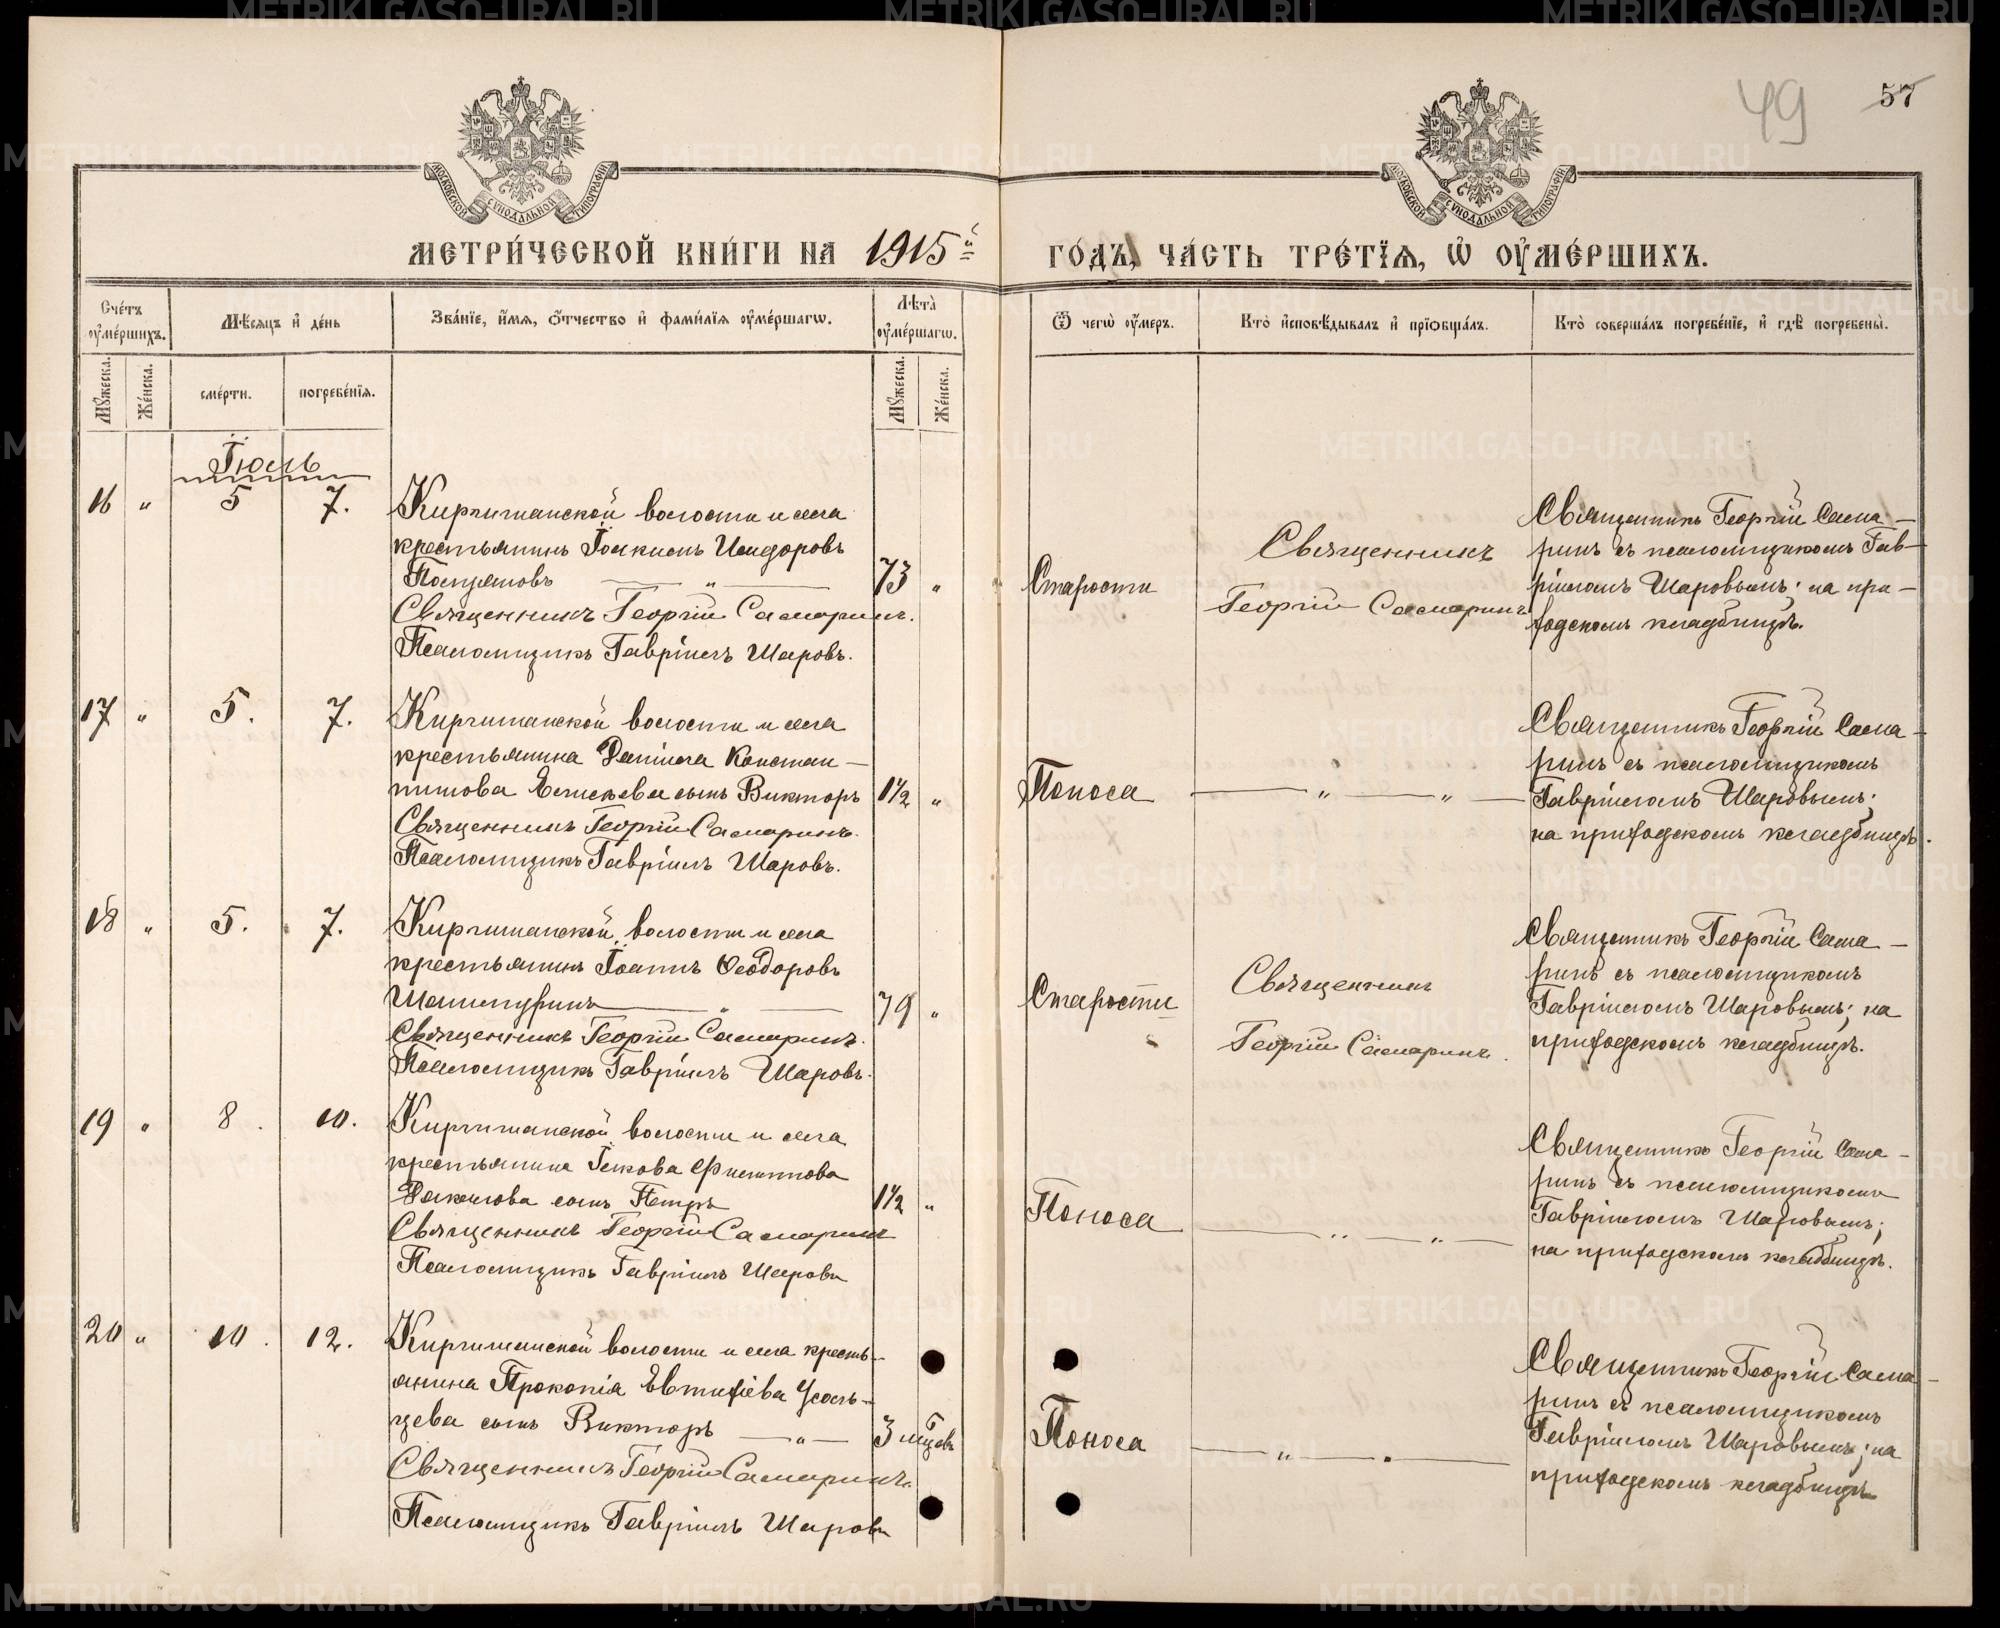 49
57
МОСКОВСКОЙ СѴНОДАЛЬНОЙ ТИПОГРАФІИ
МОСКОВСКОЙ СѴНОДАЛЬНОЙ ТИПОГРАФІИ
МЕТРИ́ЧЕСКОЙ КНИ́ГИ НА 1915й
ГО́ДЪ, ЧА́СТЬ ТРЕ́ТЇѦ, Ѡ҆ ОУ҆МЕ́РШИХЪ.
Сче́тъ оу҆ме́ршихъ.
Мѣ́сѧцъ и҆ де́нь
Зва́нїе, и҆́мѧ, ѻ҆́тчество и҆ фами́лїѧ оу҆ме́ршагѡ.
Лѣ̑та̀ оу҆ме́ршагѡ.
Ѿ чегѡ̀ оу҆́меръ.
Кто̀ и҆сповѣ́дывалъ и҆ прїѡбща́лъ.
Кто̀ соверша́лъ погребе́нїе, и҆ гдѣ̀ погребены̀.
Мꙋ́жеска.
Же́нска.
сме́рти.
погребе́нїѧ.
Мꙋ́жеска.
Же́нска.
Іюль
16 " 5 7. Киргишанской волости и села
крестьянинъ Іоакимъ Исидоровъ
73 "
Священникъ Георгій Самаринъ.
Псаломщикъ Гавріилъ Шаровъ.
Старости
Священникъ
Георгій Самаринъ
Священникъ Георгій Сама-
ринъ съ псаломщикомъ Гав-
ріиломъ Шаровымъ; на при-
ходскомъ кладбищѣ.
17 " 5. 7. Киргишанской волости и села
крестьянина Даніила Констан-
тинова сынъ Викторъ 1½ "
Священникъ Георгій Самаринъ.
Псаломщикъ Гавріилъ Шаровъ.
Поноса
— " — " —
Священникъ Георгій Сама-
ринъ съ псаломщикомъ
Гавріиломъ Шаровымъ;
на приходскомъ кладбищѣ.
18 " 5. 7. Киргишанской волости и села
крестьянинъ Іоаннъ Ѳеодоровъ
Шашмуринъ — " — 79 "
Священникъ Георгій Самаринъ.
Псаломщикъ Гавріилъ Шаровъ.
Старости
Священникъ
Георгій Самаринъ.
Священникъ Георгій Сама-
ринъ съ псаломщикомъ
Гавріиломъ Шаровымъ; на
приходскомъ кладбищѣ.
19 " 8. 10. Киргишанской волости и села
крестьянина Іакова Филиппова
сынъ Петръ 1½ "
Священникъ Георгій Самаринъ
Псаломщикъ Гавріилъ Шаровъ
Поноса
— " — " —
Священникъ Георгій Сама-
ринъ съ псаломщикомъ
Гавріиломъ Шаровымъ;
на приходскомъ кладбищѣ.
20 " 10. 12. Киргишанской волости и села кресть-
янина Прокопія Евтихіева Усоль-
цева сынъ Викторъ — " — 3 мѣсяцевъ
Священникъ Георгій Самаринъ.
Псаломщикъ Гавріилъ Шаровъ
Поноса
— " — " —
Священникъ Георгій Сама-
ринъ съ псаломщикомъ
Гавріиломъ Шаровымъ; на
приходскомъ кладбищѣ
METRIKI.GASO-URAL.RU